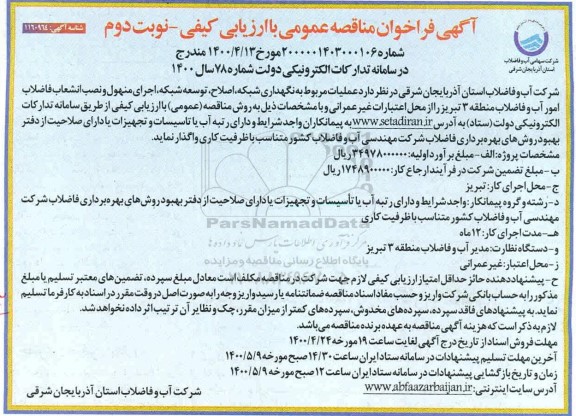 شناسه آگهی: ۱۱۶۰۹۶۴
آگهی فراخوان مناقصه عمومی با ارزیابی کیفی - نوبت دوم
شماره ۲۰۰۰۰۰۱۴۰۳۰۰۰۱۰۶ مورخ ۱۴۰۰/۴/۱۳ مندرج
در سامانه تدارکات الکترونیکی دولت شماره ۷۸ سال ۱۴۰۰
شرکت سهامی آب و فاضلاب
استان آذربایجان شرقی
شرکت آب و فاضلاب استان آذربایجان شرقی در نظر دارد عملیات مربوط به نگهداری شبکه، اصلاح، توسعه شبکه، اجرای منهول و نصب انشعاب فاضلاب
امور آب و فاضلاب منطقه ۳ تبریز را از محل اعتبارات غیر عمرانی و با مشخصات ذیل به روش مناقصه (عمومی) با ارزیابی کیفی از طریق سامانه تدارکات
الکترونیکی دولت (ستاد) به آدرس www.setadiran.ir به پیمانکاران واجد شرایط و دارای رتبه آب یا تاسیسات و تجهیزات یا دارای صلاحیت از دفتر
بهبود روش‌های بهره‌برداری فاضلاب شرکت مهندسی آب و فاضلاب کشور متناسب با ظرفیت کاری واگذار نماید.
مشخصات پروژه: الف - مبلغ برآورد اولیه: ۳۴۹۷۸۰۰۰۰۰۰ ریال
ب - مبلغ تضمین شرکت در فرآیند ارجاع کار: ۱۷۴۸۹۰۰۰۰۰ ریال
ج - محل اجرای کار: تبریز
د - رشته و گروه پیمانکار: واجد شرایط و دارای رتبه آب یا تأسیسات و تجهیزات یا دارای صلاحیت از دفتر بهبود روش‌های بهره‌برداری فاضلاب شرکت
مهندسی آب و فاضلاب کشور متناسب با ظرفیت کاری
هـ - مدت اجرای کار: ۱۲ ماه
و - دستگاه نظارت: مدیر آب و فاضلاب منطقه ۳ تبریز
ز - محل اعتبار: غیر عمرانی
ح - پیشنهاددهنده حائز حداقل امتیاز ارزیابی کیفی لازم جهت شرکت در مناقصه مکلف است معادل مبلغ سپرده، تضمین‌های معتبر تسلیم یا مبلغ
مذکور را به حساب بانکی شرکت واریز و حسب مفاد اسناد مناقصه ضمانتنامه یا رسید واریز وجه را به صورت اصل در وقت مقرر در اسناد به کارفرما تسلیم
نماید. به پیشنهادهای فاقد سپرده، سپرده‌های مخدوش، سپرده‌های کمتر از میزان مقرر، چک و نظایر آن ترتیب اثر داده نخواهد شد.
لازم به ذکر است که هزینه آگهی مناقصه به عهده برنده مناقصه می‌باشد.
مهلت فروش اسناد از تاریخ درج آگهی لغایت ساعت ۱۹ مورخه ۱۴۰۰/۴/۲۴
آخرین مهلت تسلیم پیشنهادات در سامانه ستاد ایران ساعت ۱۴/۳۰ صبح مورخه ۱۴۰۰/۵/۹
زمان و تاریخ بازگشایی پیشنهادات در سامانه ستاد ایران ساعت ۱۲ صبح مورخه ۱۴۰۰/۵/۹
آدرس سایت اینترنتی: www.abfaazarbaijan.ir
شرکت آب و فاضلاب استان آذربایجان شرقی
ParsNamadData
مرکز فرآوری اطلاعات پارس نماد داده‌ها
پایگاه اطلاع رسانی مناقصه و مزایده